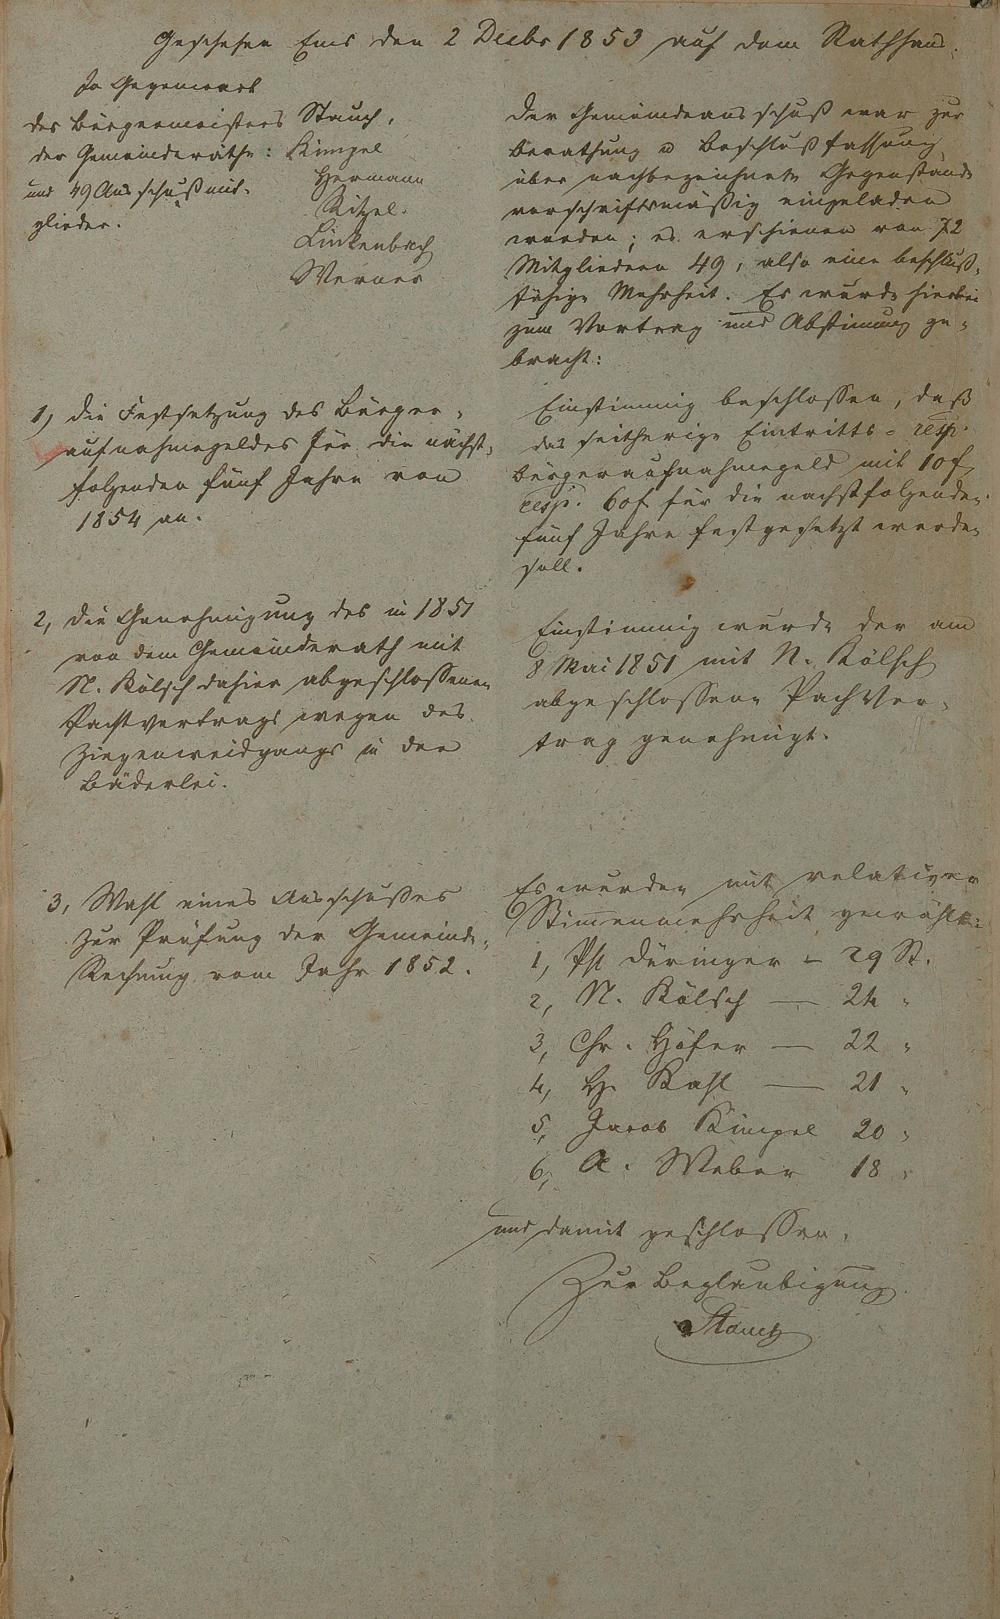 Geschehen Ems den 2 Decbr 1853 auf dem Rathhaus.
In Gegenwart
des Bürgermeisters Stauch,
der Gemeinderäthe: Kimpel
Hermann
und 49 Ausschußmit-
glieder.
Ritzel.
Linkenbach
Werner
Der Gemeindeausschuß war zur
Berathung u Beschlußfassung
über nachbezeichnete Gegenstände
vorschriftsmäßig eingeladen
worden; es erschienen von 72
Mitgliedern 49, also eine beschluß-
fähige Mehrheit. Es wurde hierbei
zum Vortrag und Abstimmung ge-
bracht:
1, Die Festsetzung des Bürger-
aufnahmegeldes für die nächst-
folgenden fünf Jahre von
1854 an.
Einstimmig beschlossen, daß
das seitherige Eintritts- resp.
Bürgeraufnahmegeld mit 10 f
resp. 60 f für die nachstfolgenden
fünf Jahre festgesetzt werden
soll.
2, Die Genehmigung des in 1851
von dem Gemeinderath mit
N. Kölsch dahier abgeschlossenen
Pachtvertrags wegen des
Ziegenweidgangs in der
Bäderlei.
Einstimmig wurde der am
8 Mai 1851 mit N. Kölsch
abgeschlossene Pachtver-
trag genehmigt.
3, Wahl eines Ausschußes
zur Prüfung der Gemeinde-
Rechnung vom Jahr 1852.
Es wurden mit relativer
Stimmenmehrheit gewählt:
1, Ph Däringer – 29 St.
2, N. Kölsch — 24 "
3, Chr. Höfer — 22 "
4, H. Kahl — 21 "
5, Jacob Kimpel 20 "
6, A. Weber 18 "
und damit geschlossen.
Zur Beglaubigung
Stauch